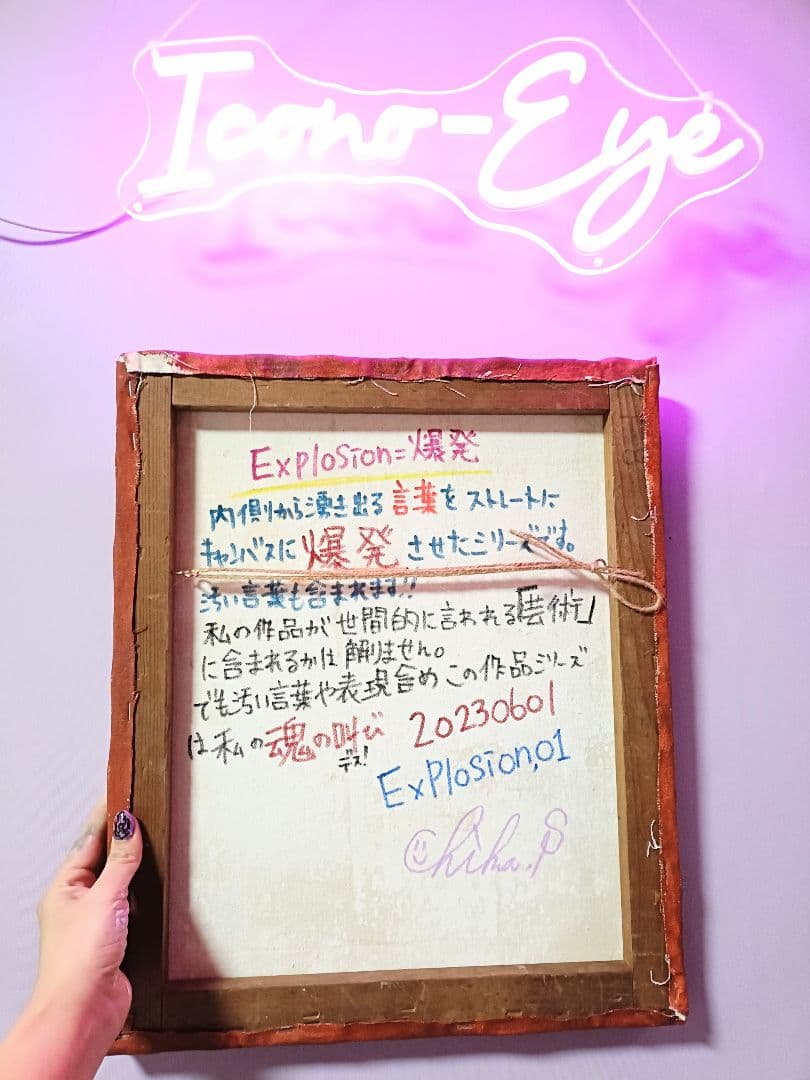 Icono-Eye
Explosion=爆発
内側から湧き出る言葉をストレートに
キャンバスに爆発させたシリーズです。
汚い言葉も含まれます!!
私の作品が世間的に言われる「芸術」
に含まれるかは解りません。
でも汚い言葉や表現含めこの作品シリーズ
は私の魂の叫び
デス!
20230601
Explosion,01
Chiha.P